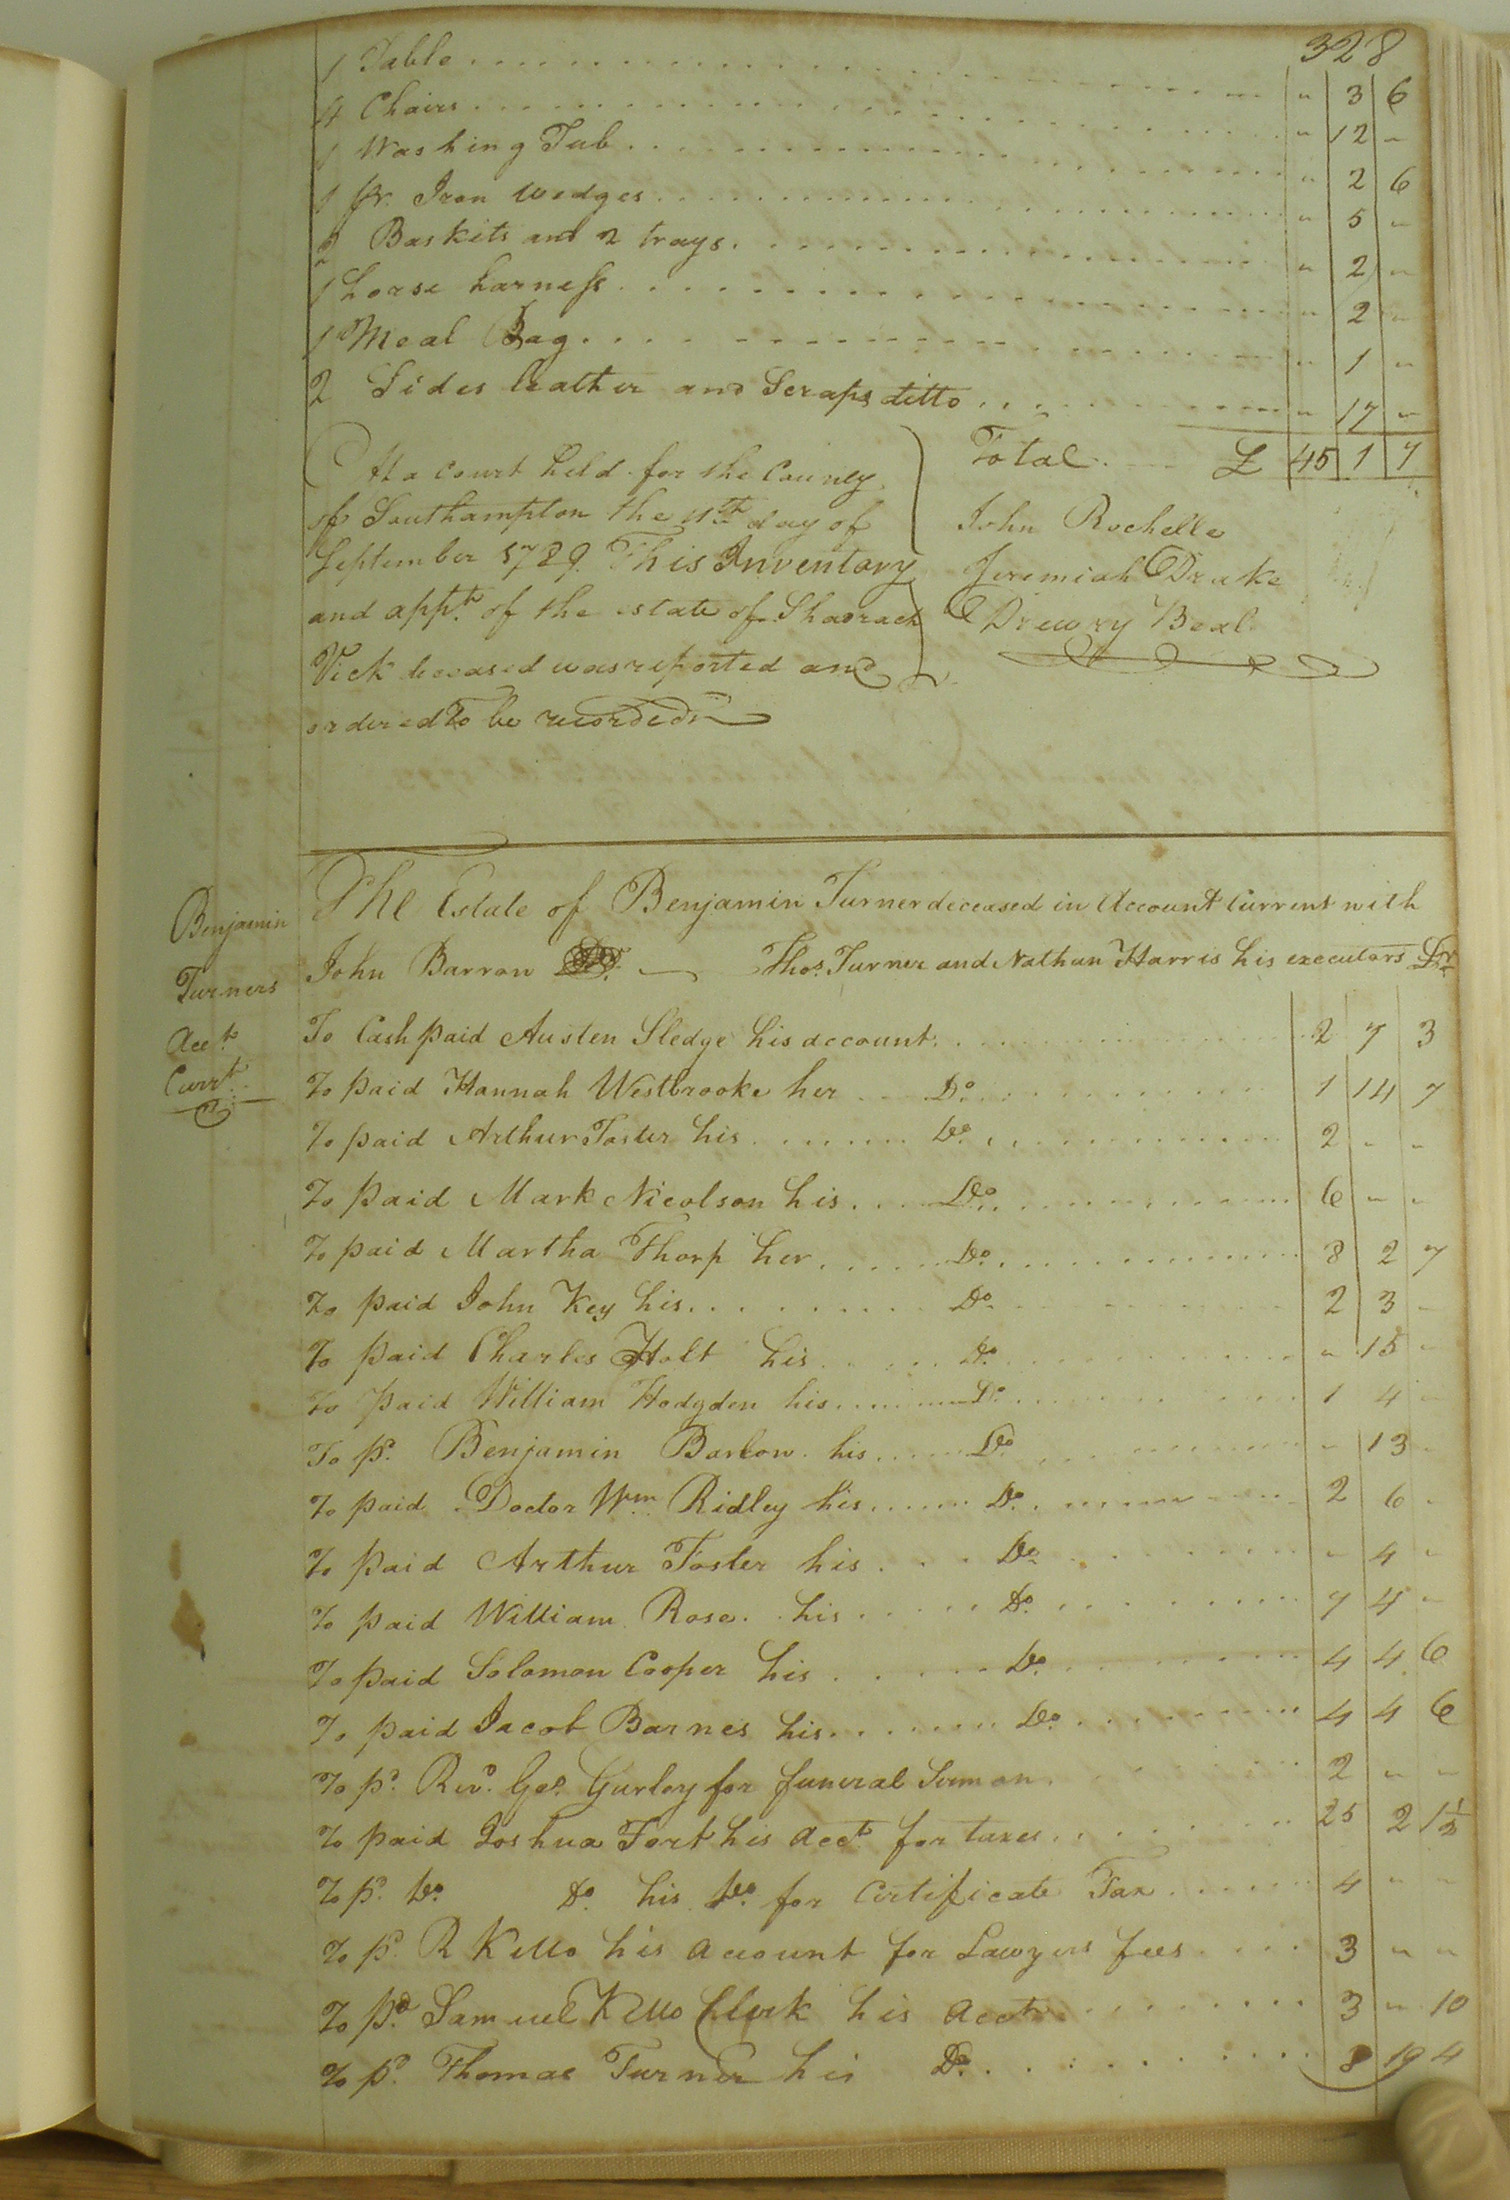 328
1 Table " 3 6
4 Chairs " 12 "
1 Washing Tub " 2 6
1 pr. Iron wedges " 5 "
2 Baskits and 2 trays " 2 "
1 horse harness " 2 "
1 Meal Bag " 1 "
2 Sides leather and Scraps ditto " 17 "
Total £ 45 1 7
At a court held for the County
of Southampton the 11th day of
September 1789 This Inventory
and appt. of the estate of Shadrach
Vick deceased was reported and
ordered to be recorded
John Rochelle
Jeremiah Drake
Drewry Beal
Benjamin
Turners
Acct.
Currt.
The Estate of Benjamin Turner deceased in Account Current with
John Barrow Thos. Turner and Nathan Harris his executors Dr.
To Cash paid Austen Sledge his account 2 7 3
To paid Hannah Westbrooke her Do. 1 14 7
To paid Arthur Foster his Do. 2 " "
To paid Mark Nicolson his Do. 6 " "
To paid Martha Thorp her Do. 8 2 7
To paid John Key his Do. 2 3 "
To paid Charles Holt his Do. " 15 "
To paid William Hodgden his Do. 1 4 "
To pd. Benjamin Barlow his Do. " 13 "
To paid Doctor Wm. Ridley his Do. 2 6 "
To paid Arthur Foster his Do. " 4 "
To paid William Rose his Do. 7 4 "
To paid Solomon Cooper his Do. 4 4 6
To paid Jacob Barnes his Do. 4 4 6
To pd. Revd. Geo. Gurley for funeral Sermon 2 " "
To paid Joshua Fort his Acct. for taxes 25 2 1½
To pd. Do. Do. his Do. for Certificate Tax 4 " "
To pd. R Kello his account for Lawyers fees 3 " "
To pd. Samuel Kello Clerk his Acct. 3 " 10
To pd. Thomas Turner his Do. 8 19 4